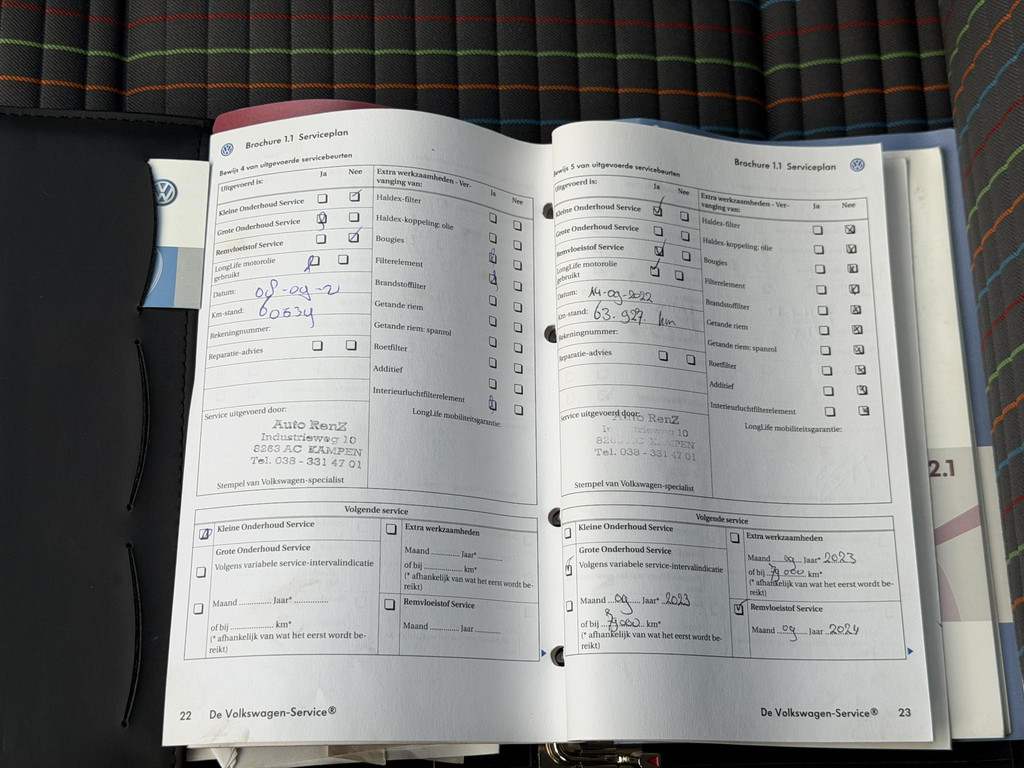 Brochure 1.1 Serviceplan
Bewijs 4 van uitgevoerde servicebeurten
Uitgevoerd is: Ja Nee
Kleine Onderhoud Service
Grote Onderhoud Service
Remvloeistof Service
LongLife motorolie
gebruikt
Datum: 08-09-21
Km-stand:
Rekeningnummer:
Reparatie-advies
Extra werkzaamheden - Ver-
vanging van: Ja Nee
Haldex-filter
Haldex-koppeling: olie
Bougies
Filterelement
Brandstoffilter
Getande riem
Getande riem: spanrol
Roetfilter
Additief
Interieurluchtfilterelement
LongLife mobiliteitsgarantie:
Service uitgevoerd door:
Auto RenZ
Industrieweg 10
8263 AC KAMPEN
Tel. 038 - 331 47 01
Stempel van Volkswagen-specialist
Volgende service
Kleine Onderhoud Service
Grote Onderhoud Service
Volgens variabele service-intervalindicatie
Maand .............. Jaar* ...............
of bij .................... km*
(* afhankelijk van wat het eerst wordt be-
reikt)
Extra werkzaamheden
Maand ............ Jaar* ..........
of bij .................. km*
(* afhankelijk van wat het eerst wordt be-
reikt)
Remvloeistof Service
Maand ............ Jaar ..........
22 De Volkswagen-Service®
Brochure 1.1 Serviceplan
Bewijs 5 van uitgevoerde servicebeurten
Uitgevoerd is: Ja Nee
Kleine Onderhoud Service
Grote Onderhoud Service
Remvloeistof Service
LongLife motorolie
gebruikt
Datum: 14-09-2022
Km-stand: 63.927 km
Rekeningnummer:
Reparatie-advies
Extra werkzaamheden - Ver-
vanging van: Ja Nee
Haldex-filter
Haldex-koppeling: olie
Bougies
Filterelement
Brandstoffilter
Getande riem
Getande riem: spanrol
Roetfilter
Additief
Interieurluchtfilterelement
LongLife mobiliteitsgarantie:
Service uitgevoerd door:
Auto RenZ
Industrieweg 10
KAMPEN
Tel. 038 - 331 47 01
Stempel van Volkswagen-specialist
Volgende service
Kleine Onderhoud Service
Grote Onderhoud Service
Volgens variabele service-intervalindicatie
Maand 09 Jaar* 2023
of bij 79000 km*
(* afhankelijk van wat het eerst wordt be-
reikt)
Extra werkzaamheden
Maand 09 Jaar* 2023
of bij 79000 km*
(* afhankelijk van wat het eerst wordt be-
reikt)
Remvloeistof Service
Maand 09 Jaar 2024
De Volkswagen-Service® 23
2.1